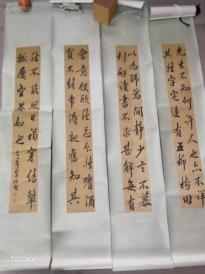 先生不知何許人也亦不詳
其姓字宅邊有五柳樹因
以為號焉閒靜少言不慕
利好讀書不求甚解每有
會意便欣然忘食性嗜酒
貧不能常得親舊知其
然不蔽風日褐穿結簞
瓢屢空晏如也